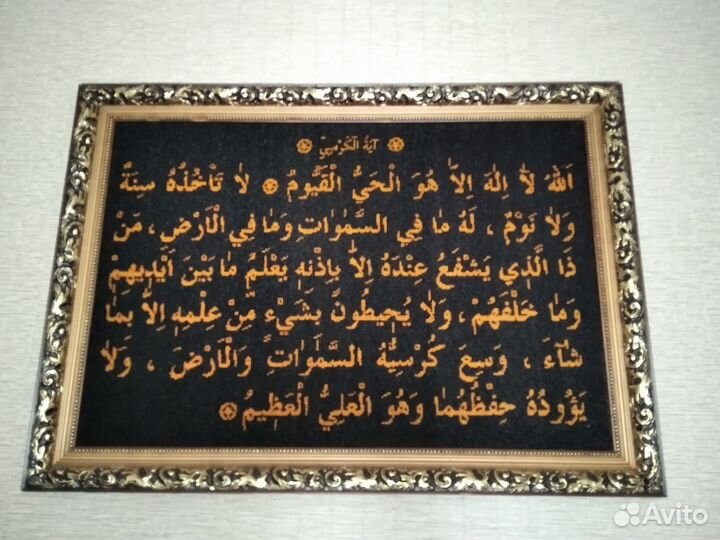 آيَةُ الْكُرْسِيِّ
اَللّٰهُ لَآ اِلٰهَ اِلَّا هُوَ الْحَيُّ الْقَيُّومُ ۞ لَا تَأْخُذُهُ سِنَةٌ
وَلَا نَوْمٌ ، لَهُ مَا فِي السَّمٰوَاتِ وَمَا فِي الْاَرْضِ ، مَنْ
ذَا الَّذِي يَشْفَعُ عِنْدَهُ اِلَّا بِاِذْنِهِ يَعْلَمُ مَا بَيْنَ اَيْدِيهِمْ
وَمَا خَلْفَهُمْ ، وَلَا يُحِيطُونَ بِشَيْءٍ مِّنْ عِلْمِهِ اِلَّا بِمَا
شَآءَ ، وَسِعَ كُرْسِيُّهُ السَّمٰوَاتِ وَالْاَرْضَ ، وَلَا
يَؤُودُهُ حِفْظُهُمَا وَهُوَ الْعَلِيُّ الْعَظِيمُ ۞
Avito